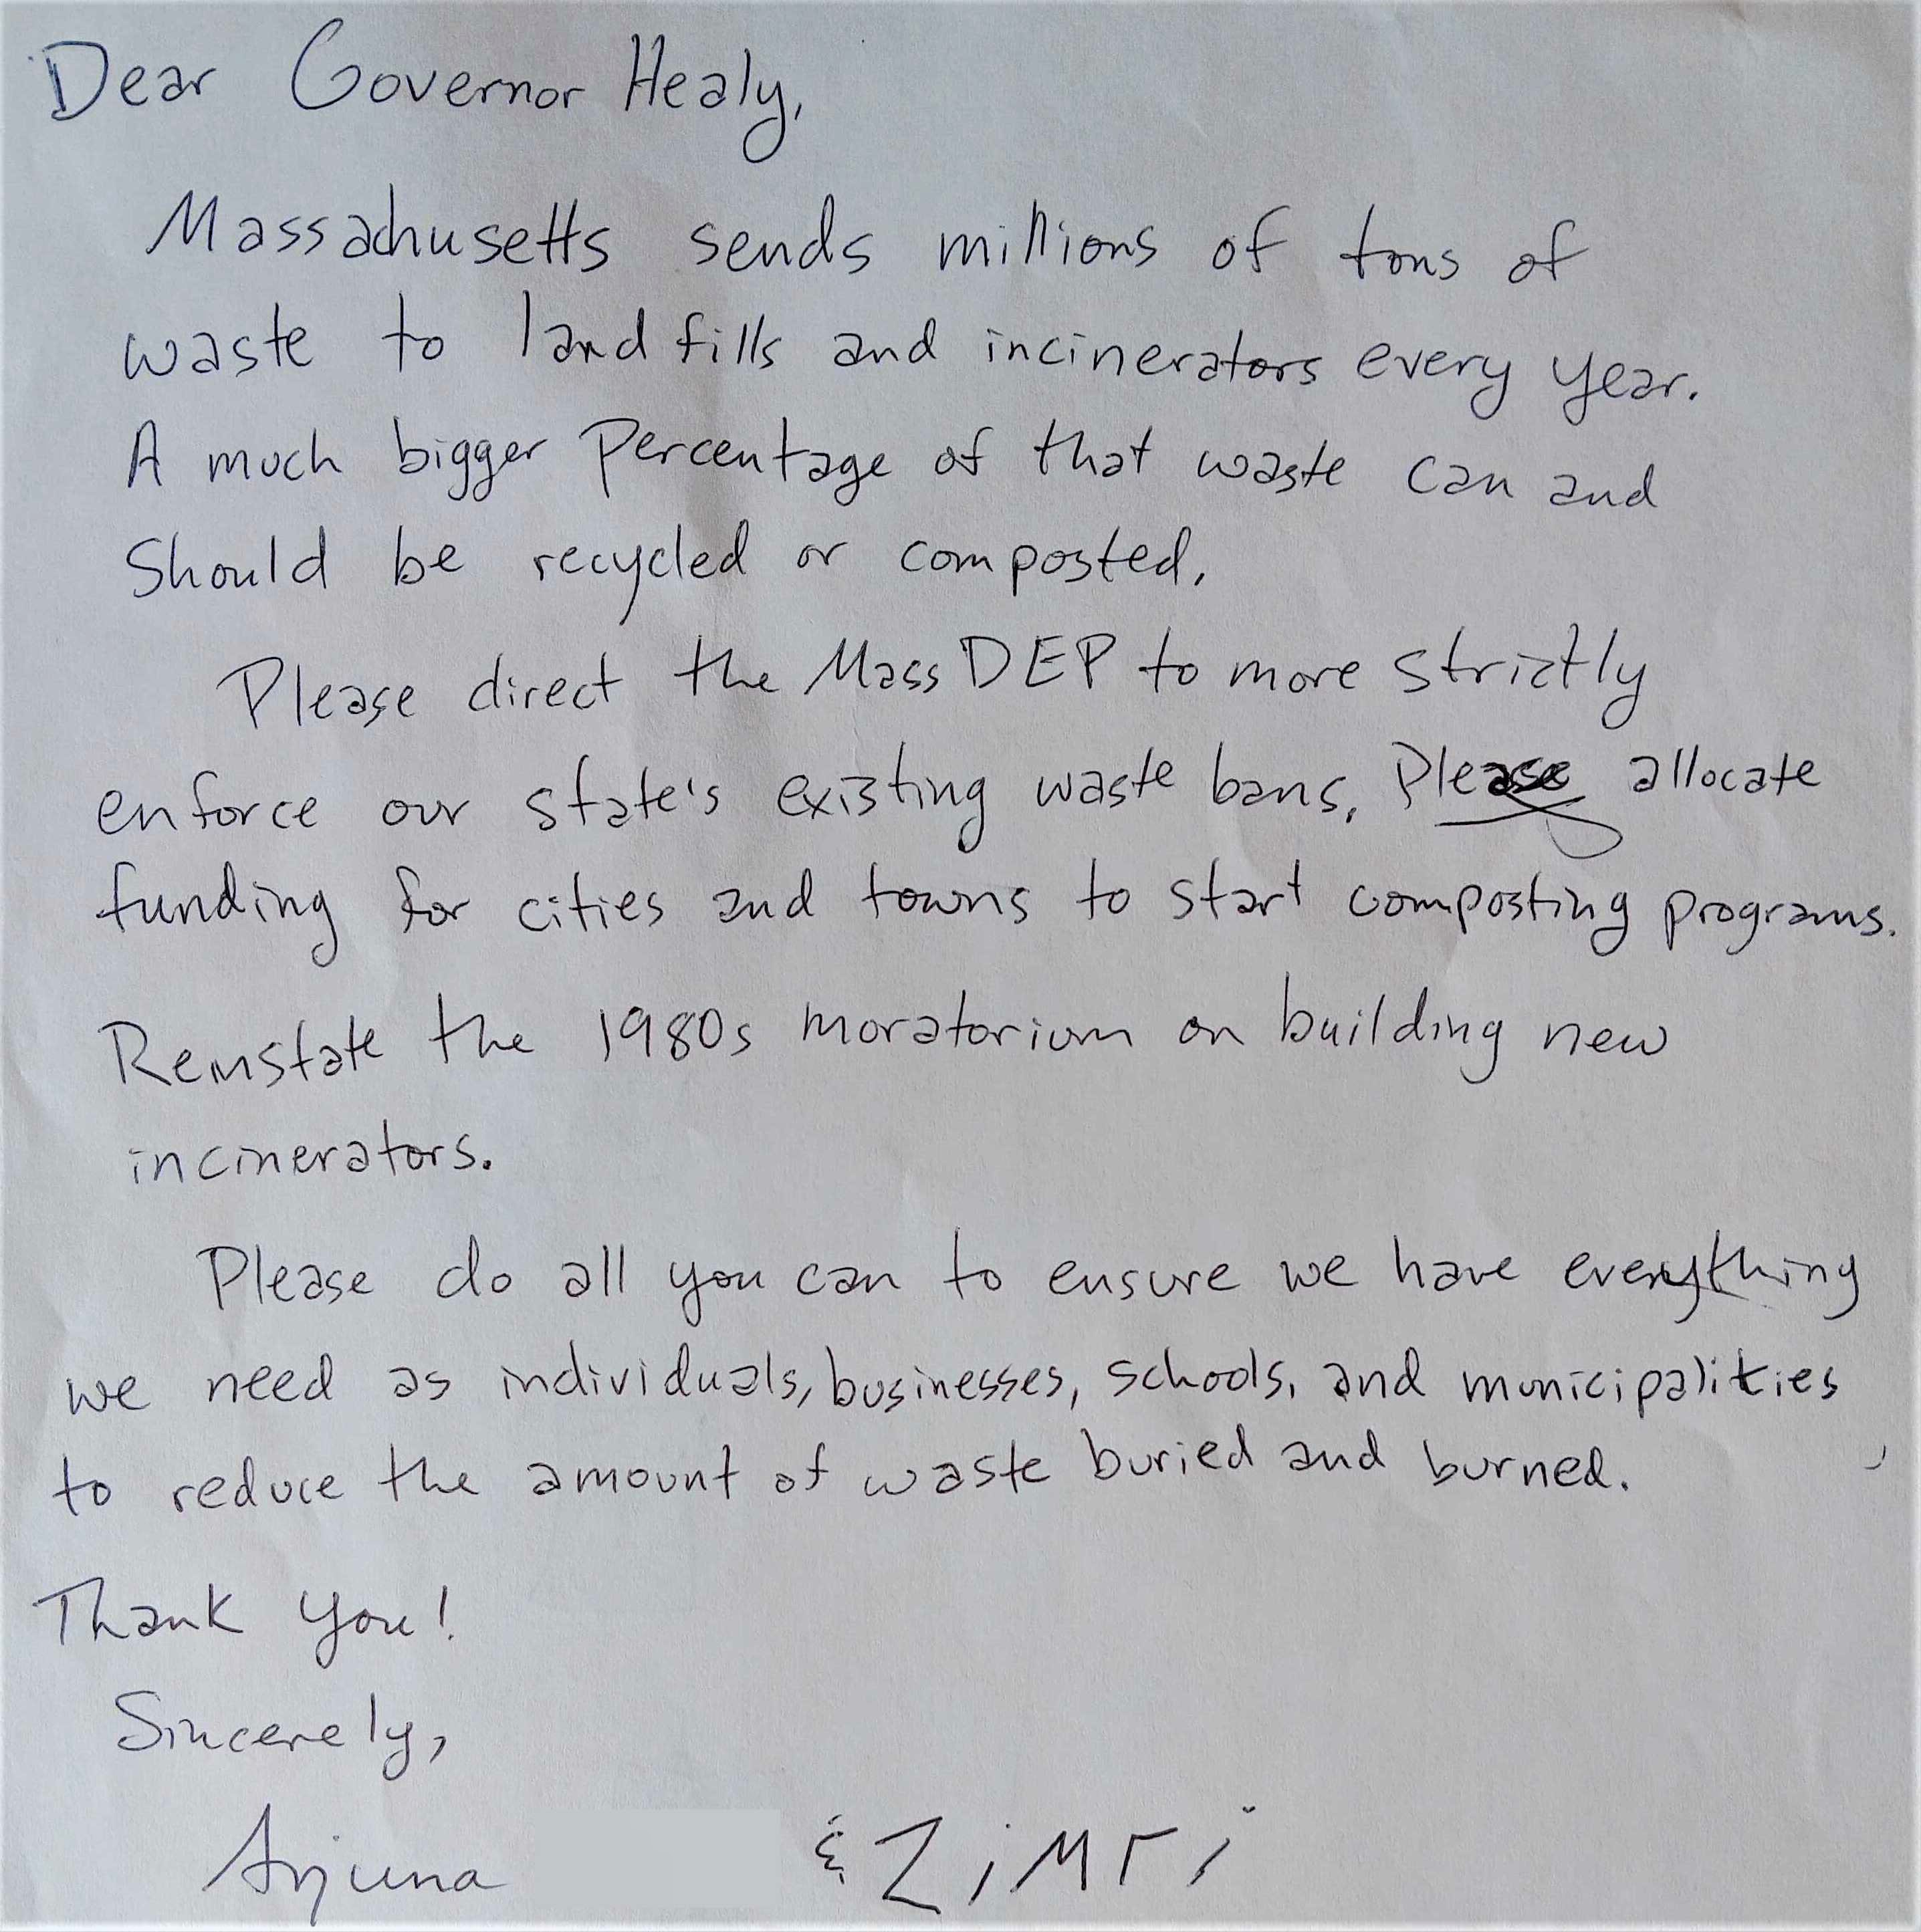 Dear Governor Healy,
Massachusetts sends millions of tons of
waste to landfills and incinerators every year.
A much bigger percentage of that waste can and
Should be recycled or composted.
Please direct the MassDEP to more strictly
enforce our state's existing waste bans. Please allocate
funding for cities and towns to start composting programs.
Reinstate the 1980s moratorium on building new
incinerators.
Please do all you can to ensure we have everything
we need as individuals, businesses, schools, and municipalities
to reduce the amount of waste buried and burned.
Thank you!
Sincerely,
Arjuna & Zimri